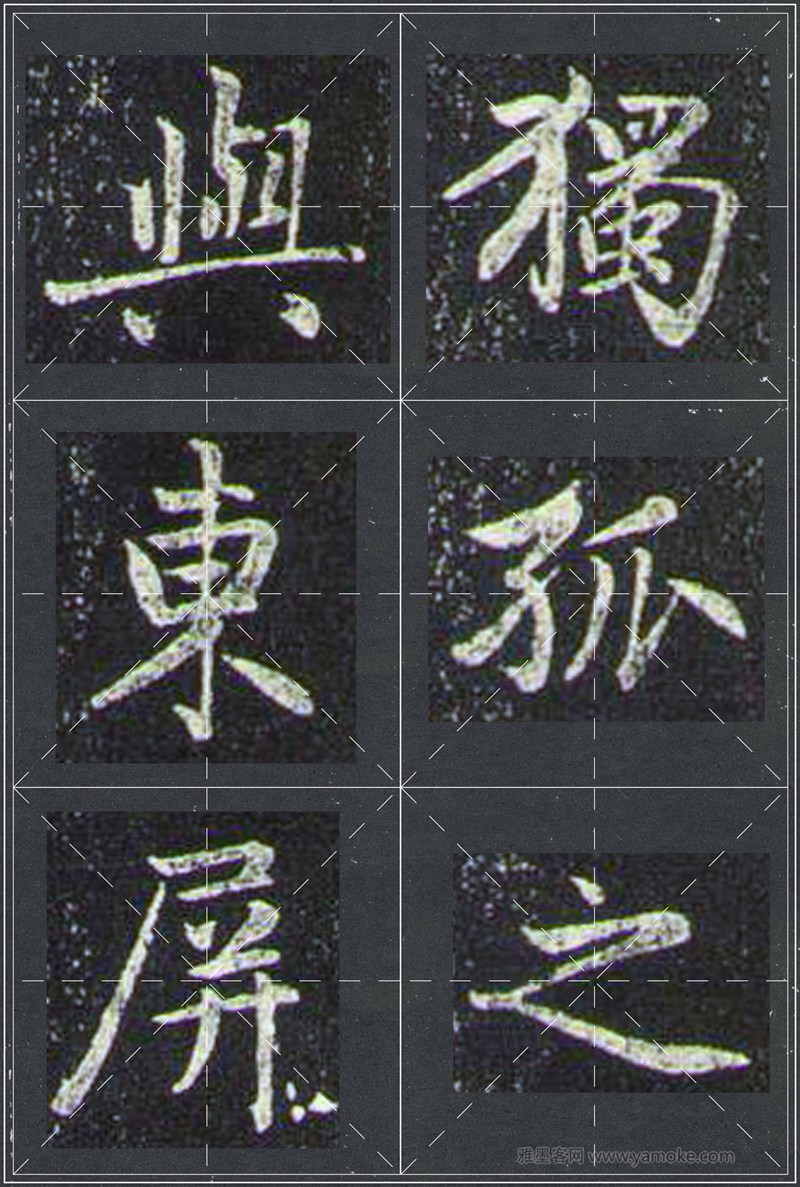 獨孤之
與東屏
雅墨客网 www.yamoke.com